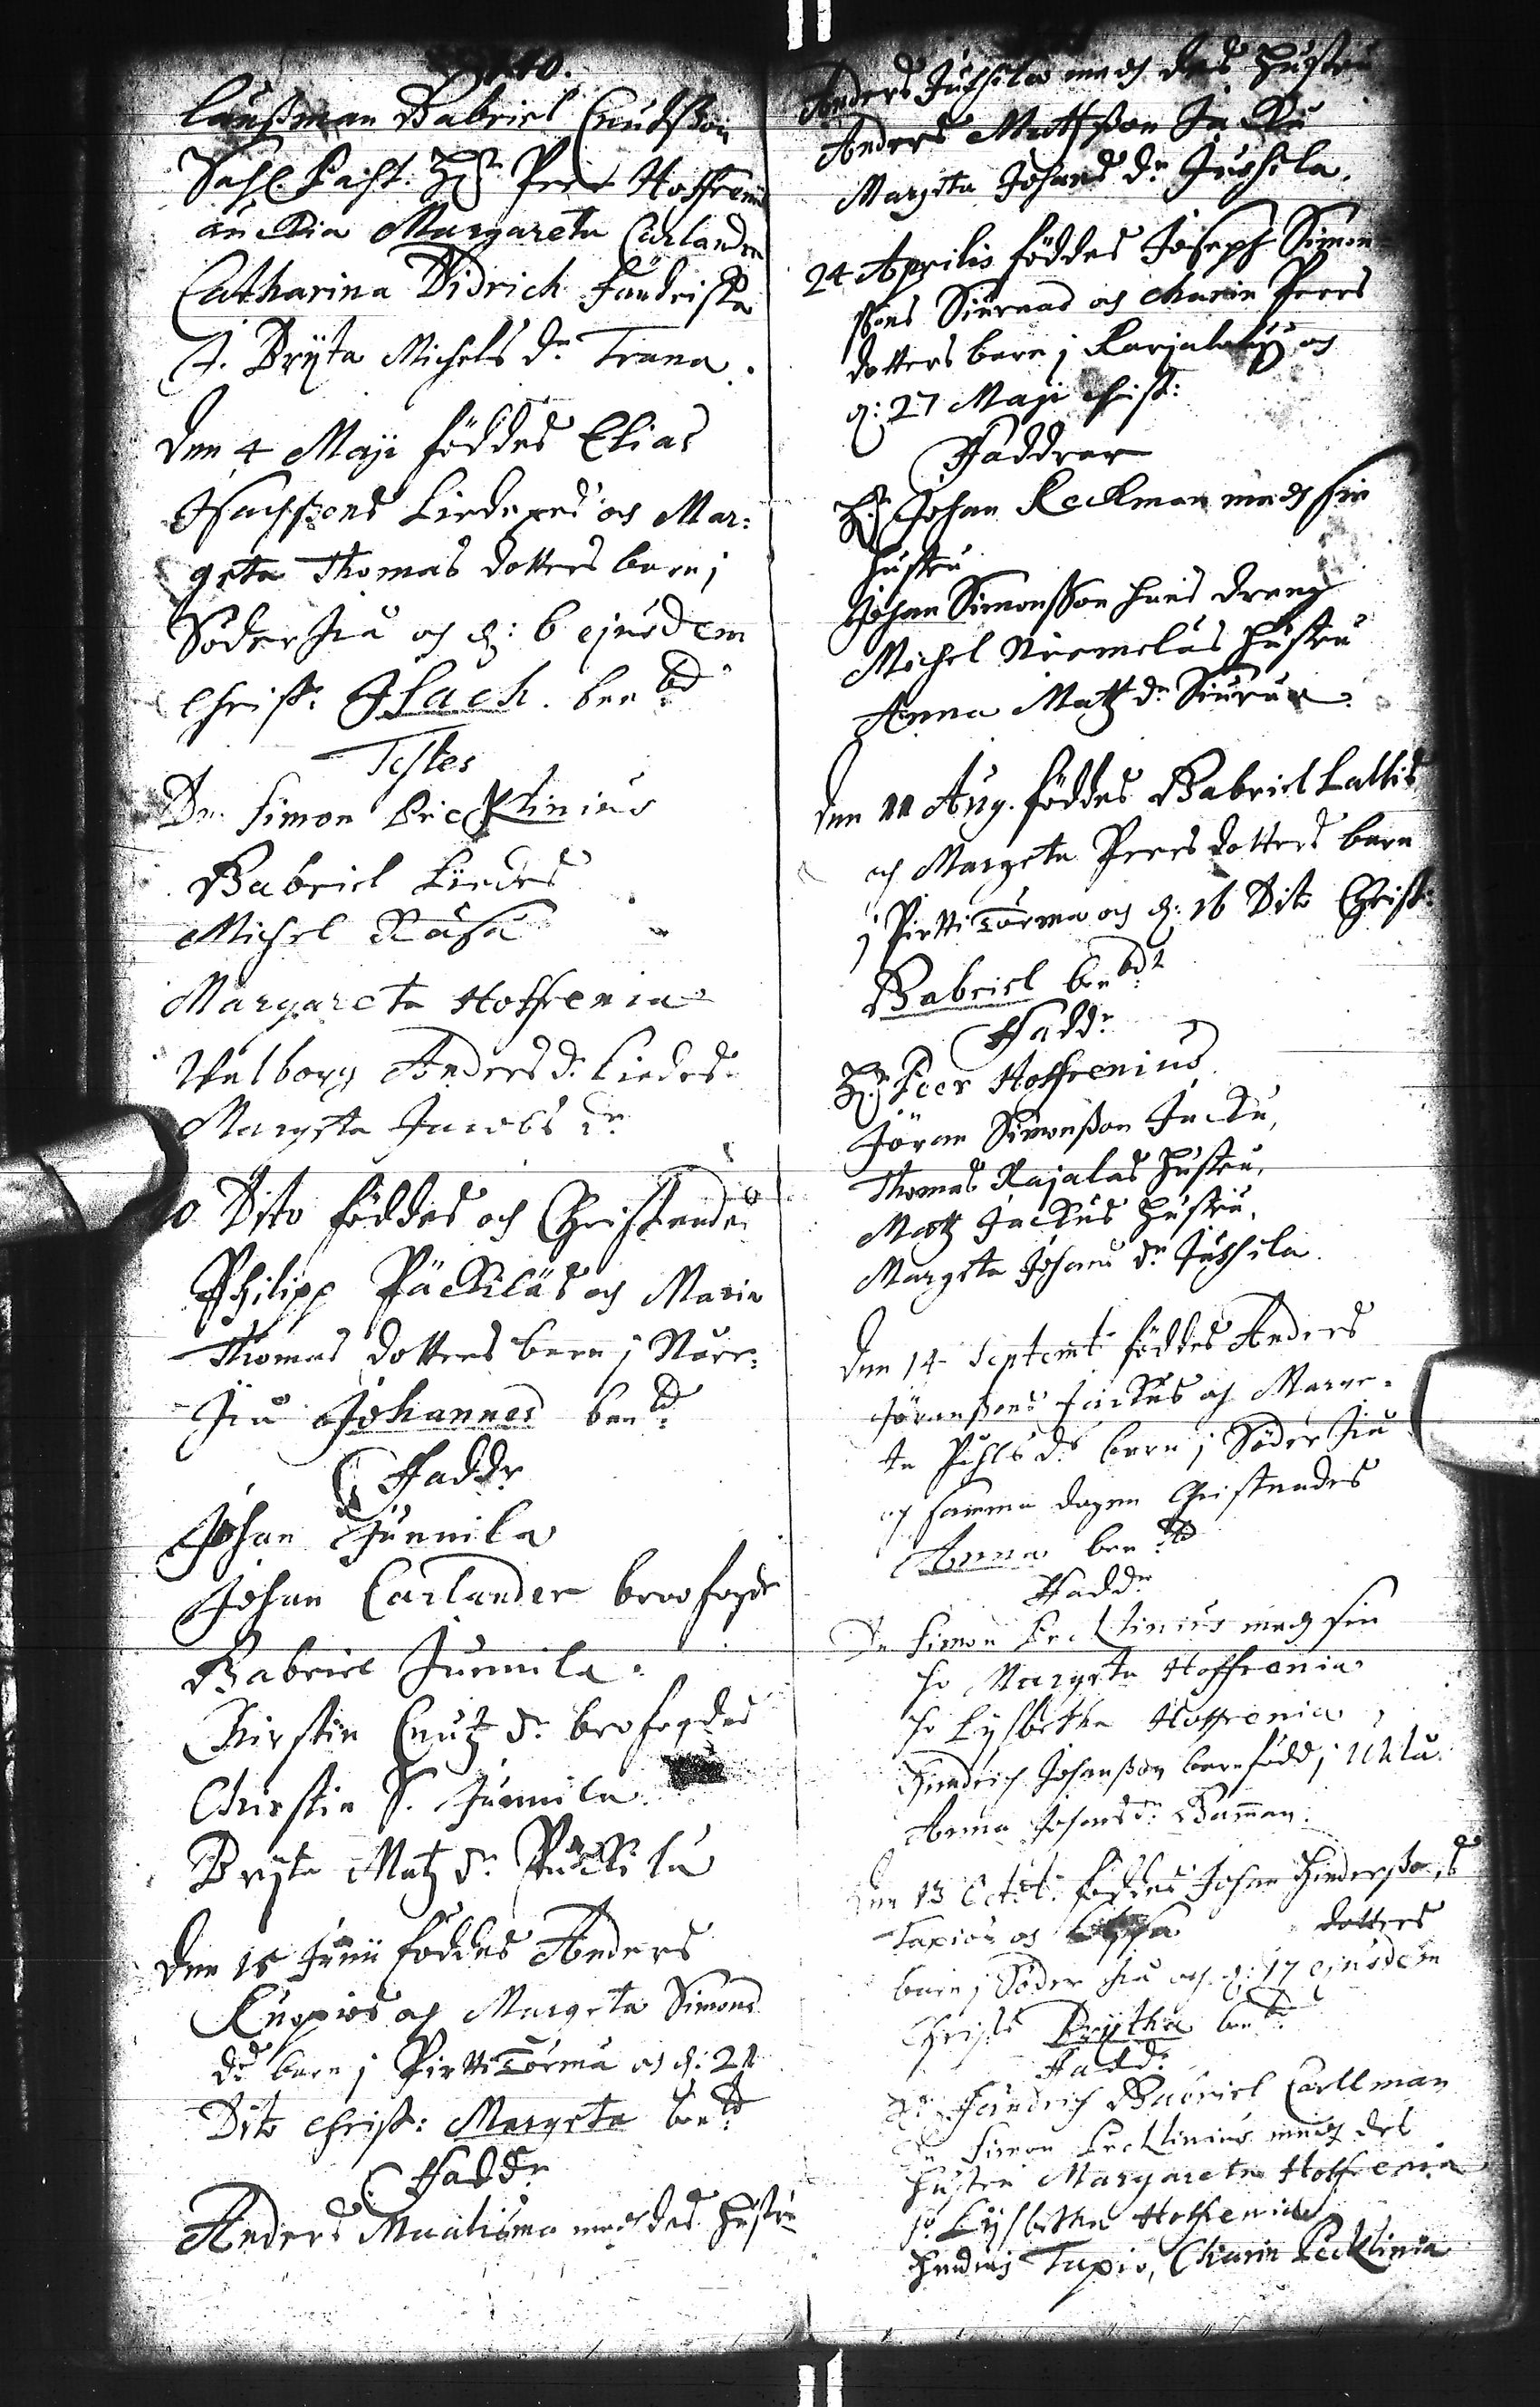 Länßman Gabriel Cnutsson
Sahl. Past. Hr Peer Hoffreni
änckia Margareta Carlandra
Catharina Didrich Fändriks
J. Bryta Michels dr Trana.
Den 4 Maji föddes Elias
Isachsons Liedexes och Mar=
greta Thomas dotters barn i
Söder Jiu och d: 6 ejusdem
Christ: Isach. ben:d
Testes
Dn. Simon Pecklinius
Gabriel Liedes
Michel Rasa
Margareta Hoffrenia
Valborg Anders d. Liedes
Margeta Jacobs dr
10 Dito föddes och Christendes
Philipp Päckiläs och Maria
Thomas dotters barn i Norr=
Jiu Johannes ben:d
Faddr
Johan Junnila
Johan Carlander broofogde
Gabriel Junnila.
Kirstin Cnutz dr brofogdes
Christin S. Junnila
Bryta Matz dr Päckilä
Den 15 Junii föddes Anders
Kuopios och Margeta Simons
dr barn i Pirttitörmä och d: 21
Dito Christ: Margeta ben:d
Faddr
Anders Maalisma med des hustru
Anders Jushila med des hustru
Anders Mattsson Jacku
Margeta Johans dr Jushila.
24 Aprilis föddes Joseph Simon=
ssons Siuruas och Charin Peers
dotters barn i Karjalakyl och
d: 27 Maji Christ:
Faddrar
Hr Johan Keckman med sin
hustru
Johan Simonsson hans dreng
Michel Niemeläs hustru
Anna Matz dr Siurua.
Den 11 Aug. föddes Gabriel Lallis
och Margeta Peers dotters barn
i Pirttitörmä och d: 16 Dito Christ:
Gabriel ben:d
Faddr
Hr Peer Hoffrenius
Jöran Simonsson Jacku,
Thomas Rajalas hustru,
Matz Jackus hustru,
Margeta Johans dr Jushila.
Den 14 Septemb föddes Anders
Jöranssons Jackus och Marge=
ta Påhls dr barn i Söder Jiu
och samma dagen Christendes
Anna ben:d
Faddr
Dn Simon Pecklinius med sin
h. Margeta Hoffrenia
h. Lysbetha Hoffrenia,
Hindrich Johansson barnfödd i Uhlu
Anna Johans dr Bamman.
Den 13 Octob. föddes Johan Hinderssons
Tapios och dotters
barn i Söder Jiu och d: 17 ejusdem
Christ: Brytha ben:d
Faddr
Hr Fändrich Gabriel Carllman
Dn Simon Pecklinius med des
hustru Margareta Hoffrenia
h. Lysbetha Hoffrenia
Hindrich Tapio, Charin Pecklinia